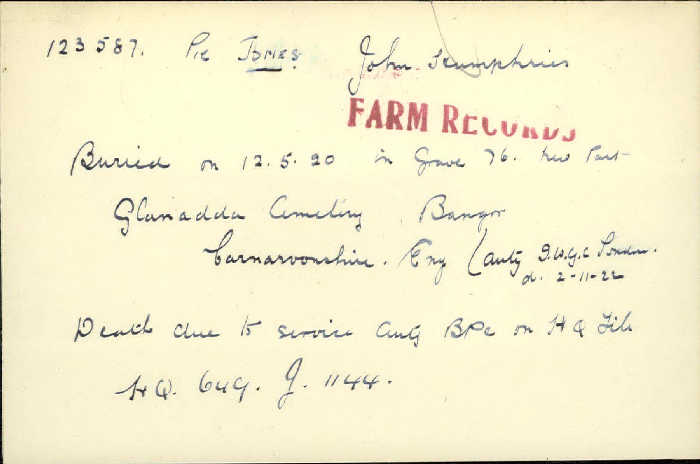 123587. Pte Jones John Humphries
FARM RECORDS
Buried on 12.5.20 in Grave 76. New Part
Glanadda Cemetery, Bangor
Carnarvonshire. Eng (auty I.W.G.C London.
d. 2-11-22
Death due to service Auty BPC on HQ File
HQ. 649. J. 1144.